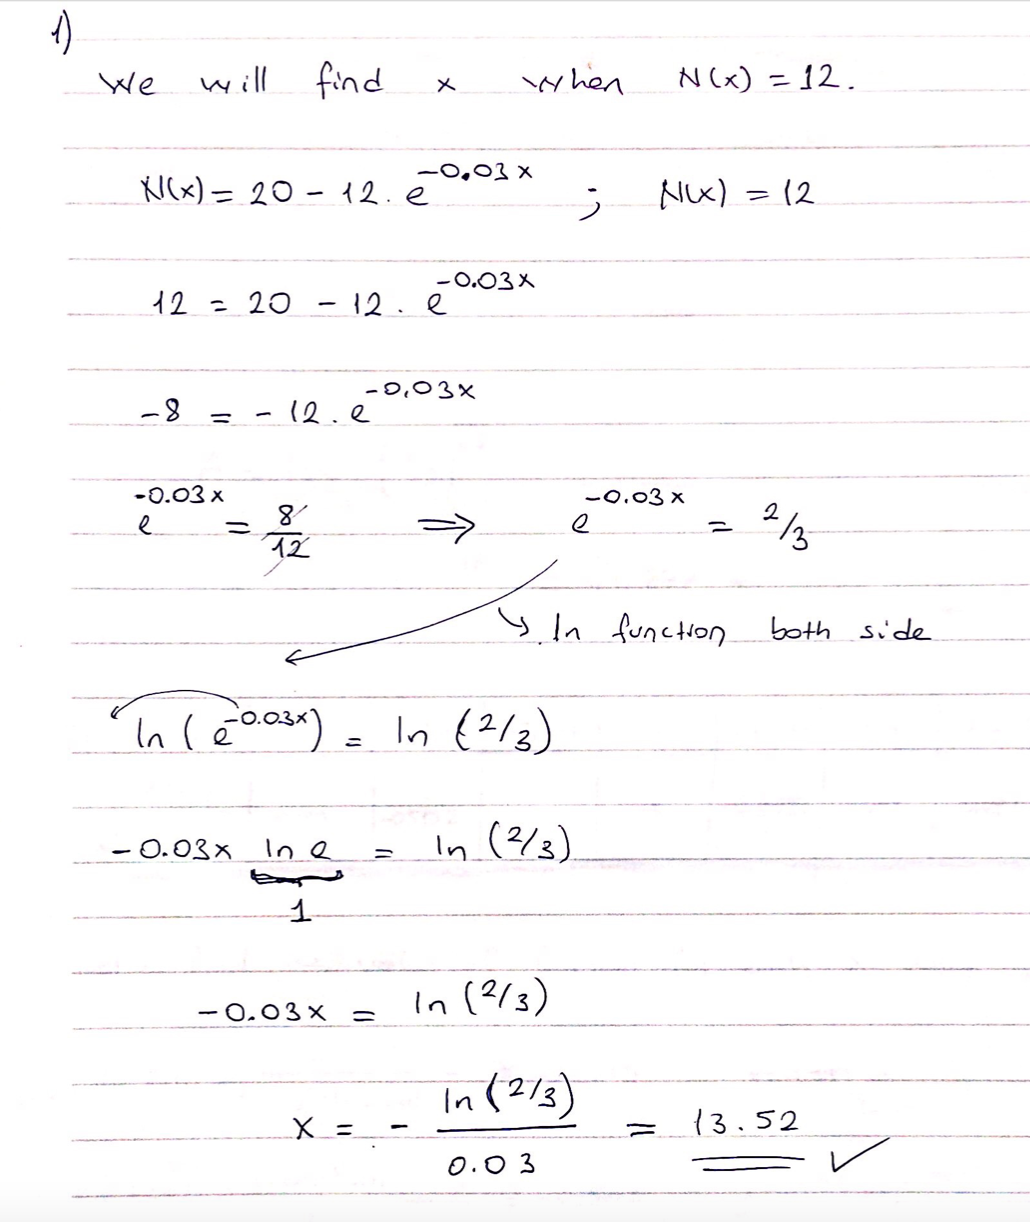 1)
We will find x when N(x) = 12.
N(x) = 20 - 12. e^-0.03x ; N(x) = 12
12 = 20 - 12. e^-0.03x
-8 = -12. e^-0.03x
e^-0.03x = 8/12 ⇒ e^-0.03x = 2/3
↳ ln function both side
ln(e^-0.03x) = ln (2/3)
-0.03x ln e = ln (2/3)
1
-0.03x = ln (2/3)
x = - ln(2/3)/0.03 = 13.52 ✓